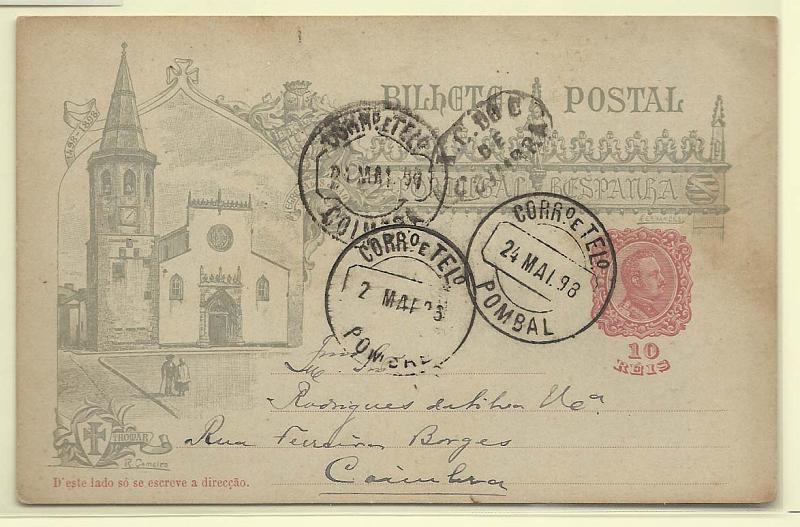 BILHETE POSTAL
PORTUGAL E HESPANHA
1498-1898
CORRº E TELº
MAI. 98
COIMBRA
DE
COIMBRA
CORRº E TELº
24 MAI. 98
POMBAL
CORRº E TELº
2 MAI 98
POMBAL
10
REIS
Rodrigues da Silva
Rua Ferreira Borges
Coimbra
THOMAR
D'este lado só se escreve a direcção.